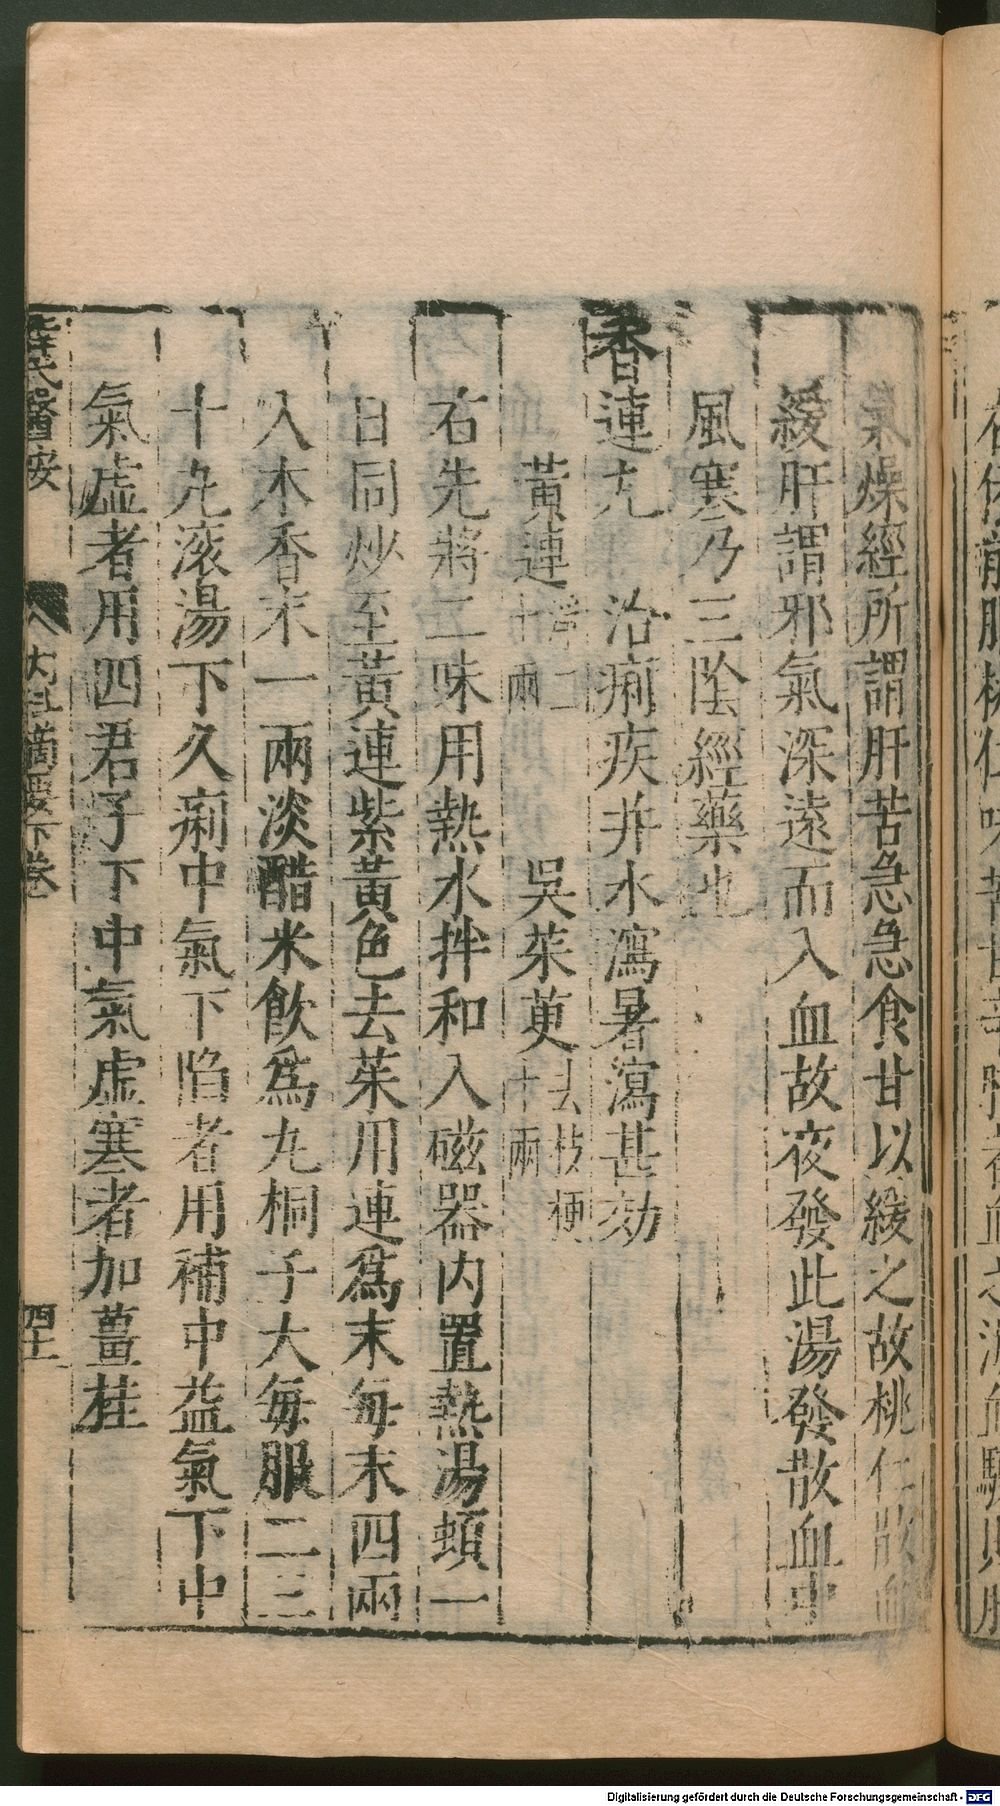 氣燥經所謂肝苦急急食甘以緩之故桃仁散血
緩肝謂邪氣深遠而入血故夜發此湯發散血中
風寒乃三陰經藥也
香連丸　治痢疾并水瀉暑瀉甚効
黃連淨二十兩　吳茱萸去枝梗十兩
右先將二味用熱水拌和入磁器內置熱湯頓一
日同炒至黃連紫黃色去茱用連爲末每末四兩
入木香末一兩淡醋米飲爲丸桐子大每服二三
十丸滚湯下久痢中氣下陷者用補中益氣下中
氣虛者用四君子下中氣虛寒者加薑桂
薛氏醫案　內科摘要下卷　四十一
Digitalisierung gefördert durch die Deutsche Forschungsgemeinschaft - DFG